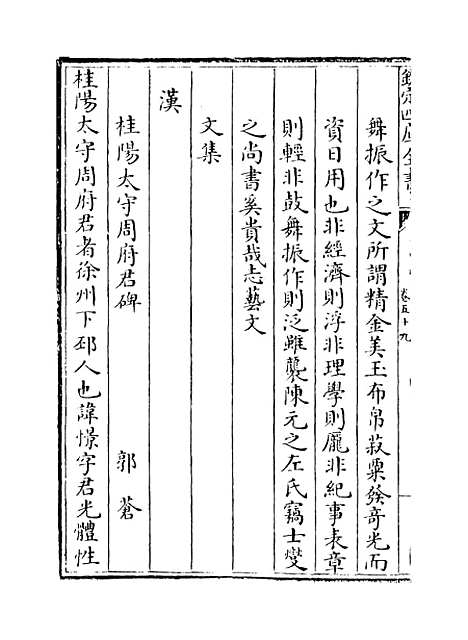 欽定四庫全書
卷五十九
舞振作之文所謂精金美玉布帛菽粟發奇光而
資日用也非經濟則浮非理學則龐非紀事表章
則輕非鼓舞振作則泛雖襲陳元之左氏竊士燮
之尚書奚貴哉志藝文
文集
漢
桂陽太守周府君碑 郭蒼
桂陽太守周府君者徐州下邳人也諱憬字君光體性